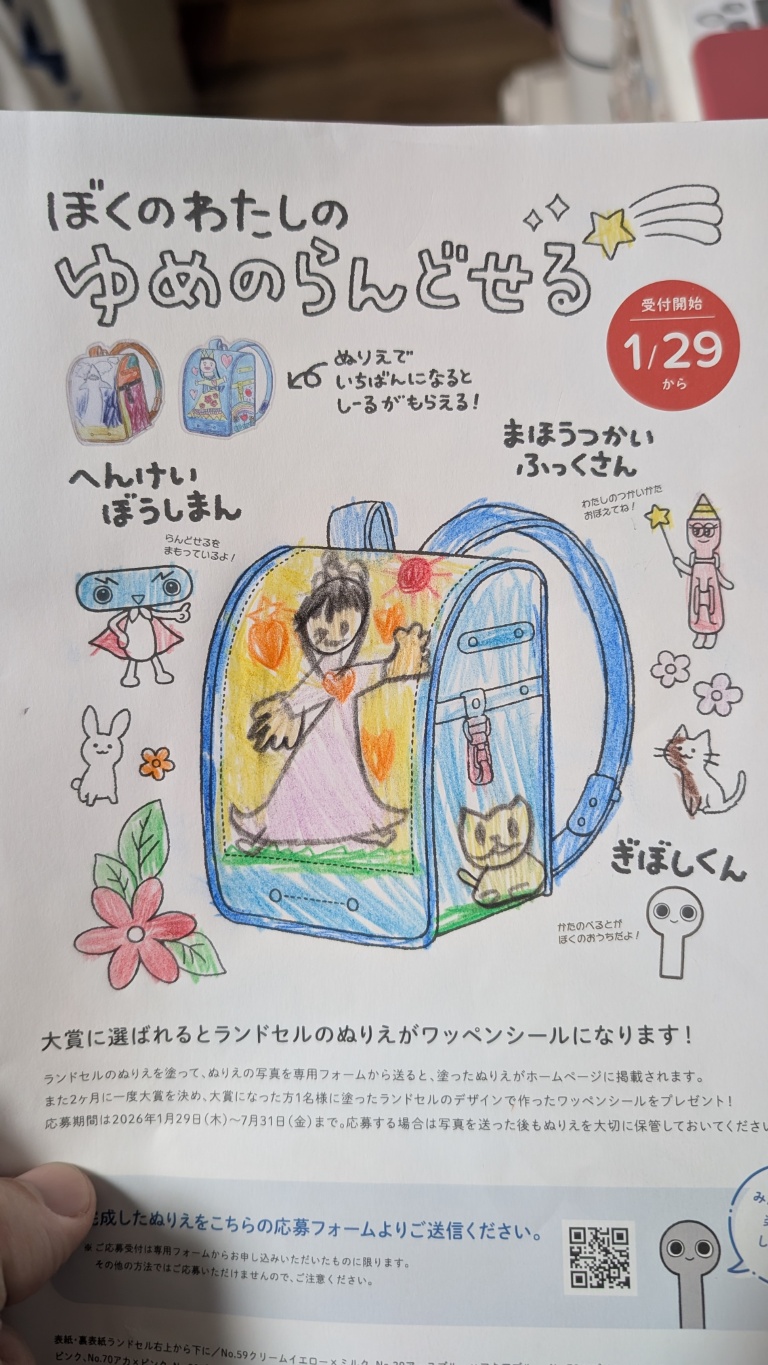 ぼくのわたしの
ゆめのらんどせる
受付開始
1/29
から
ぬりえで
いちばんになると
しーるがもらえる!
まほうつかい
ふっくさん
わたしのつかいかた
おぼえてね!
へんけい
ぼうしまん
らんどせるを
まもっているよ!
ぎぼしくん
かたのべるとが
ぼくのおうちだよ!
大賞に選ばれるとランドセルのぬりえがワッペンシールになります!
ランドセルのぬりえを塗って、ぬりえの写真を専用フォームから送ると、塗ったぬりえがホームページに掲載されます。
また2ヶ月に一度大賞を決め、大賞になった方1名様に塗ったランドセルのデザインで作ったワッペンシールをプレゼント!
応募期間は2026年1月29日(木)〜7月31日(金)まで。応募する場合は写真を送った後もぬりえを大切に保管しておいてください
成したぬりえをこちらの応募フォームよりご送信ください。
※ご応募受付は専用フォームからお申し込みいただいたものに限ります。
その他の方法ではご応募いただけませんので、ご注意ください。
表紙・裏表紙ランドセル右上から下に/No.59クリームイエロー×ミルク、
ピンク、No.70アカ×ピンク、